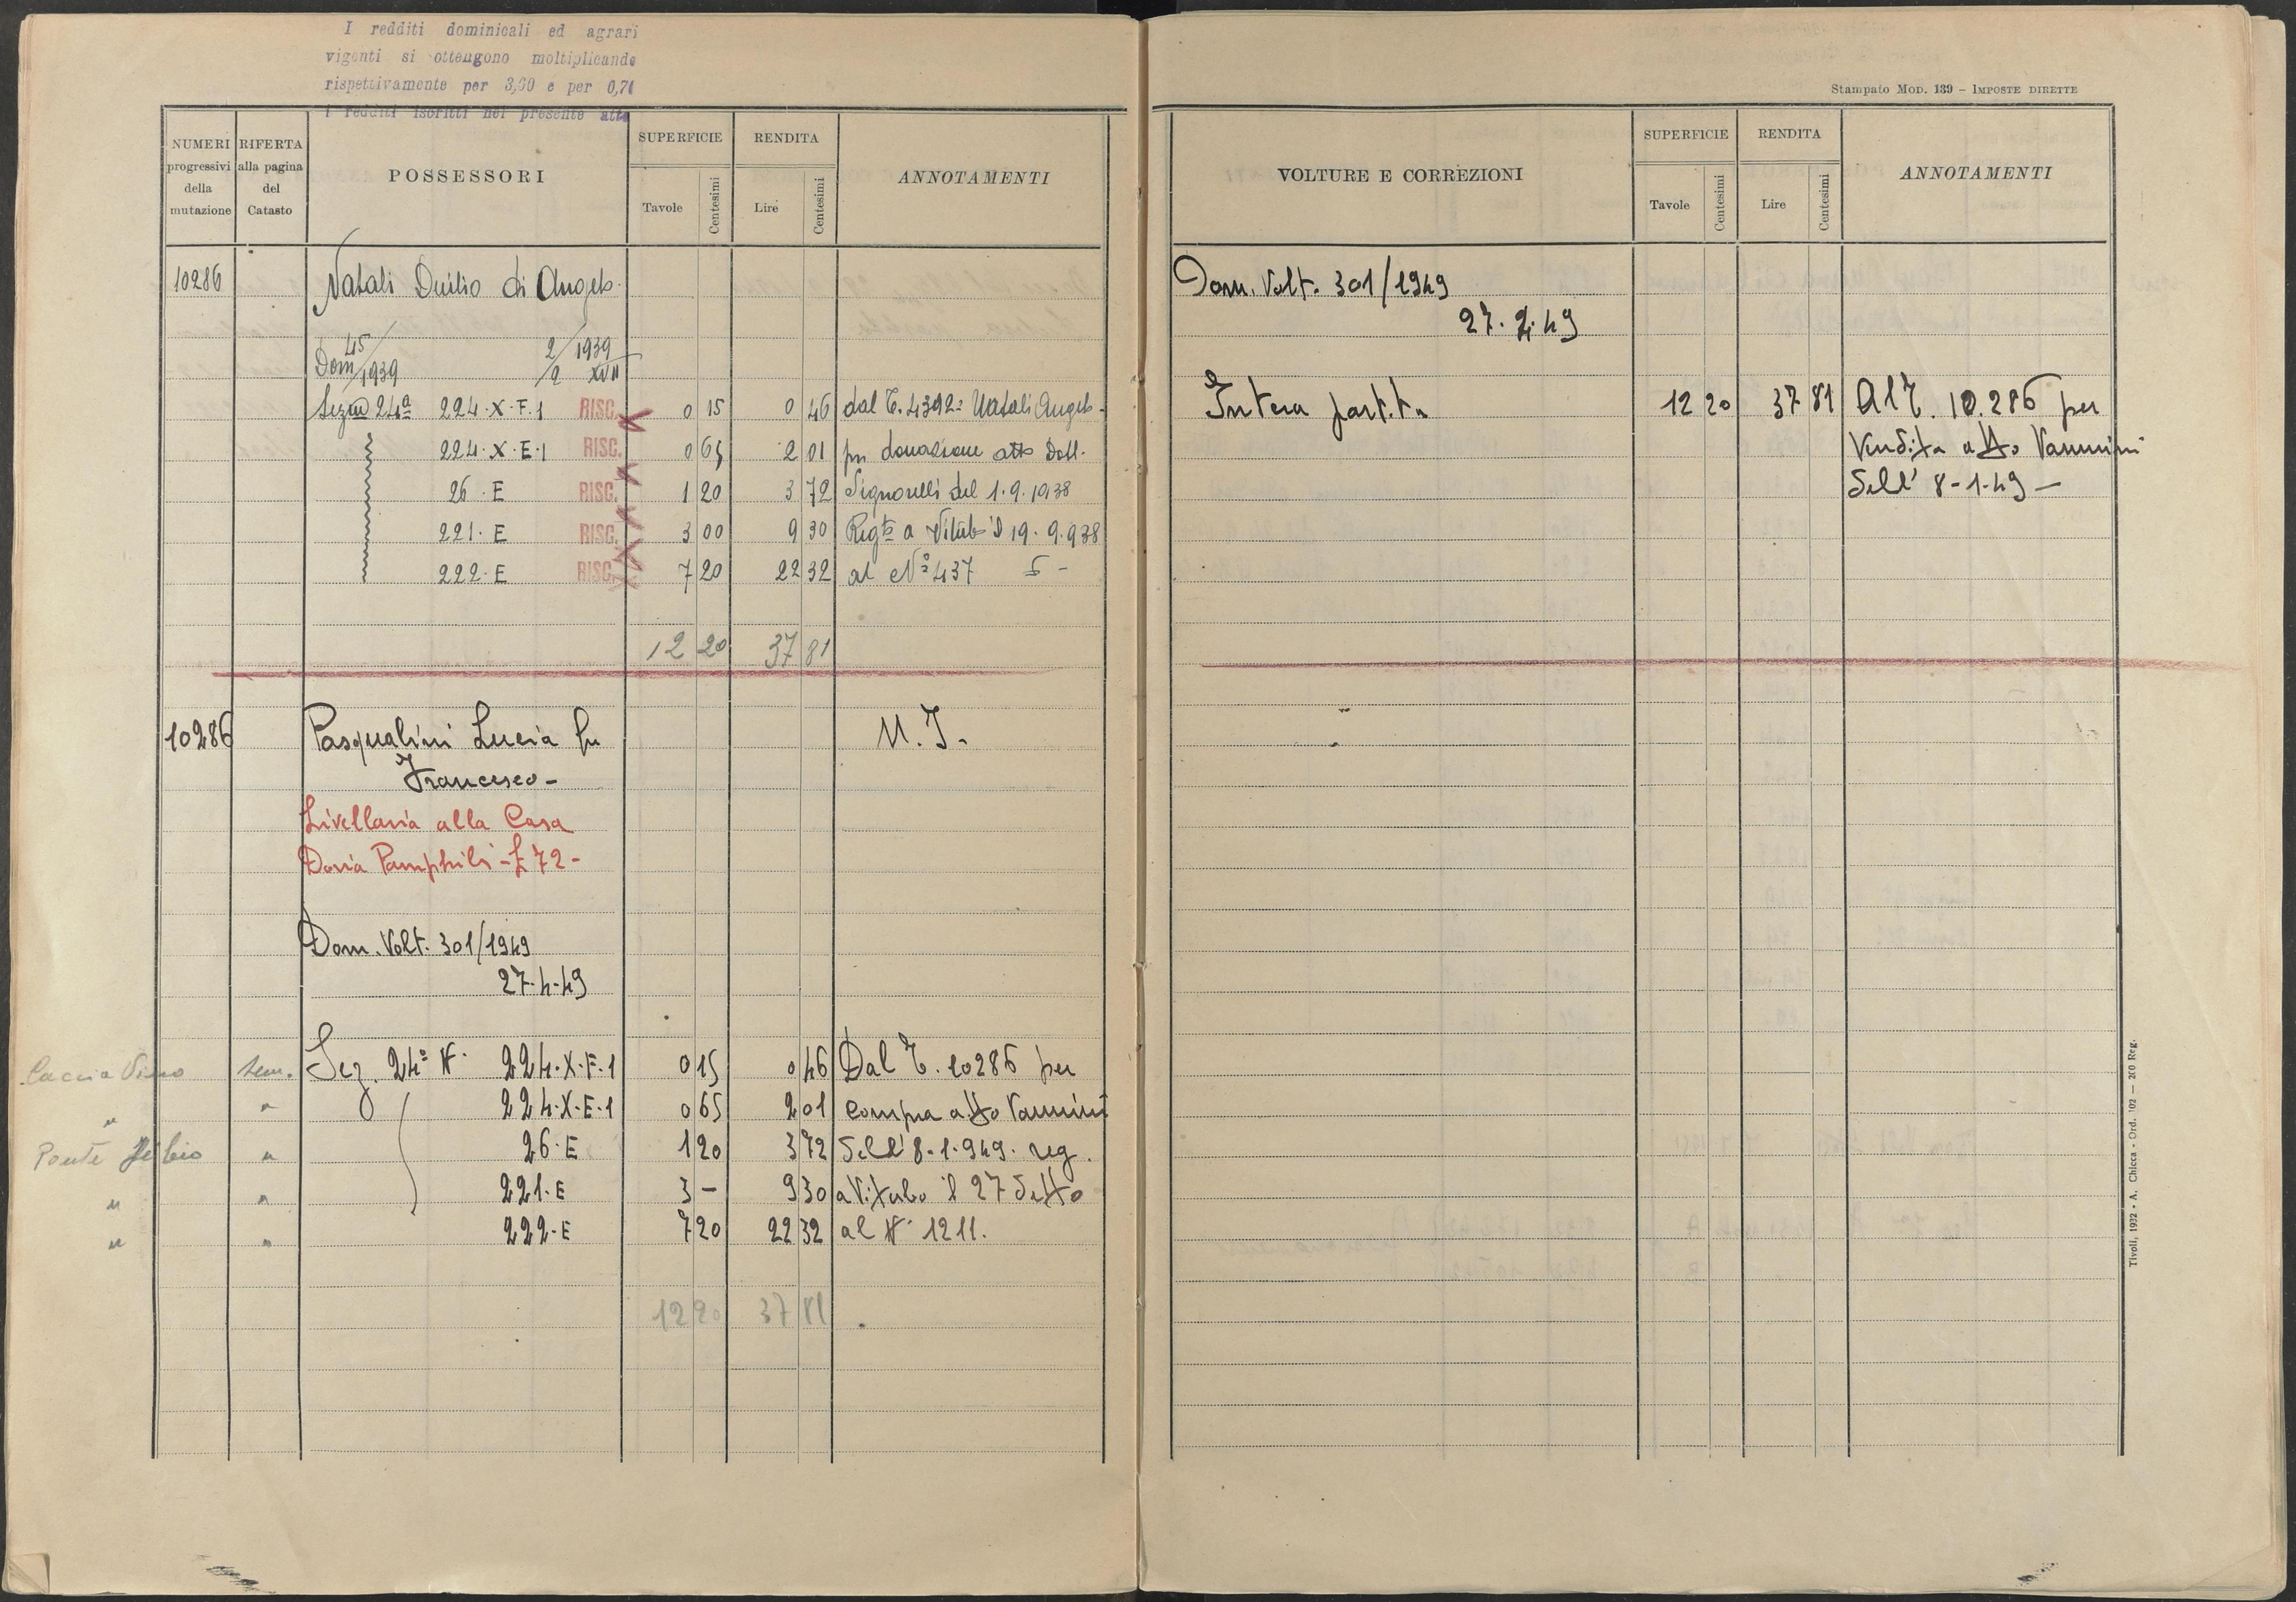 I redditi dominicali ed agrari
vigenti si ottengono moltiplicando
rispettivamente per 3,60 e per 0,71
i redditi iscritti nel presente atto
NUMERI progressivi della mutazione
RIFERTA alla pagina del Catasto
POSSESSORI
SUPERFICIE
Tavole Centesimi
RENDITA
Lire Centesimi
ANNOTAMENTI
10286 Natali Duilio di Angelo
Dom 45/1939 2/2 1939 XVII
Sezne 24a 224.X.F.1 RISC. 0 15 0 46 dal T. 4392= Natali Angelo-
224.X.E.1 RISC. 0 65 2 01 per donazione atto Dott.
26.E RISC. 1 20 3 72 Signorelli del 1.9.1938
221.E RISC. 3 00 9 30 Regto a Viterbo il 19.9.938
222.E RISC. 7 20 22 32 al No 437
12 20 37 81
10286 Pasqualini Lucia fu U.I.
Francesco-
Livellaria alla Casa
Doria Pamphili - £ 72 -
Dom. Volt. 301/1949
27-4-49
sem. Sez. 24a N. 224.X.F.1 0 15 0 46 Dal T. 10286 per
" " 224.X.E.1 0 65 2 01 compra atto Vannini
Ponte " 26.E 1 20 3 72 dell' 8-1-949. reg.
" " 221.E 3 - 9 30 a Viterbo il 27 detto
" " 222-E 7 20 22 32 al N. 1211.
12 20 37 81
Stampato MOD. 139 - IMPOSTE DIRETTE
VOLTURE E CORREZIONI
SUPERFICIE
Tavole Centesimi
RENDITA
Lire Centesimi
ANNOTAMENTI
Dom. Volt. 301/1949
27.4.49
Intera partita 12 20 37 81 Al T. 10.286 per
Vendita atto Vannini
dell' 8-1-49 -
Tivoli, 1932 - A. Chicca - Ord. 102 - 200 Reg.